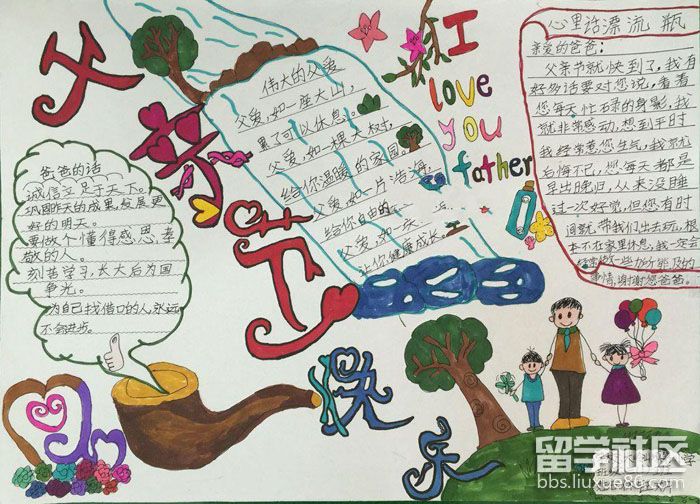 父亲节
快乐
I
love
you
father
伟大的父爱
父爱,如一座大山,
累了可以休息。
父爱,如一棵大树,
给你温暖的家园。
父爱,如一片浩海,
给你自由的
父爱,如一
让你健康成长。
心里话漂流瓶
亲爱的爸爸:
父亲节就快到了,我有
好多话要对您说,看着
您每天忙碌的身影,我
就非常感动,想到平时
我经常惹您生气,我就
后悔不已,您每天都是
早出晚归,从来没睡
过一次好觉,但您有时
间就带我们出去玩,根
本不在家里休息,我一定会
些力所能及的
事情,谢谢您爸爸。
爸爸的话
诚信立足于天下。
巩固昨天的成果,发展更
好的明天。
要做个懂得感恩、孝
敬的人。
刻苦学习,长大后为国
争光。
为自己找借口的人,永远
不会进步。
留学社区
bbs.liuxue86.com